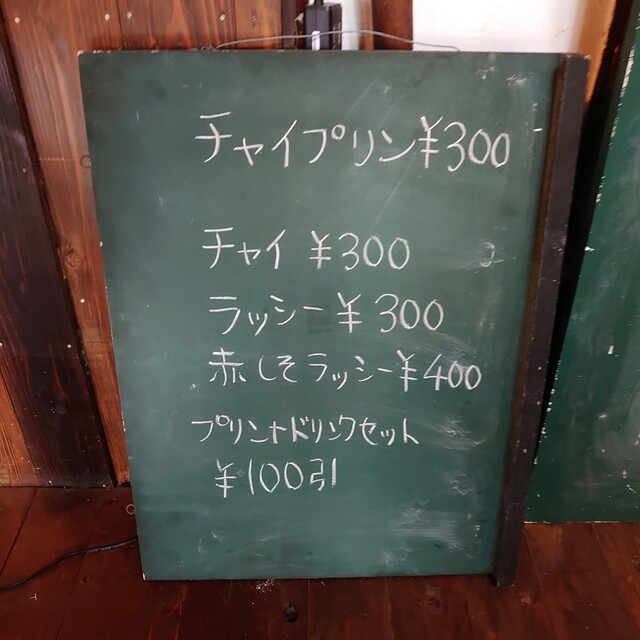 チャイプリン¥300
チャイ ¥300
ラッシー¥300
赤しそラッシー¥400
プリン+ドリンクセット
¥100引